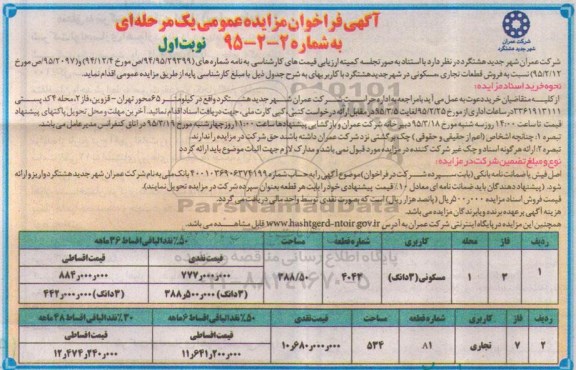 آگهی فراخوان مزایده عمومی یک مرحله‌ای
به شماره ۲-۲-۹۵ نوبت اول
شرکت عمران
شهر جدید هشتگرد
شرکت عمران شهر جدید هشتگرد در نظر دارد با استناد به صورتجلسه کمیته ارزیابی قیمت های کارشناسی به نامه شماره های (۹۴/۹۵/۲۹۳۹۹/ص مورخ ۹۴/۱۲/۴) و (۹۵/۲۰۹۷/ص مورخ
۹۵/۲/۱۲) نسبت به فروش قطعات تجاری، مسکونی در شهر جدید هشتگرد با کاربریهای به شرح جدول ذیل با مبلغ کارشناسی پایه از طریق مزایده عمومی اقدام نماید.
نحوه خرید اسناد مزایده:
از کلیه متقاضیان خرید دعوت به عمل می آید با مراجعه به اداره شرکت عمران شهر جدید هشتگرد واقع در کیلومتر ۶۵ محور تهران - قزوین، فاز ۲، محله ۴ کد پستی
۳۳۶۱۹۱۳۱۱۱ در ساعات اداری از مورخ ۹۵/۲/۲۵ لغایت ۹۵/۳/۵ در مقابل ارائه درخواست کتبی، کپی کارت ملی، جهت دریافت اسناد اقدام نمائید. آخرین مهلت و محل تحویل پاکتهای پیشنهاد
قیمت تا ساعت ۱۴:۰۰ روز سه شنبه مورخ ۹۵/۳/۱۸ دبیرخانه شرکت عمران و بازگشایی پیشنهادها ساعت ۱۱:۰۰ روز چهارشنبه مورخ ۹۵/۳/۱۹ در اتاق کنفرانس مدیرعامل می باشد.
تبصره ۱: چنانچه اشخاص (اعم از حقیقی و حقوقی) چک برگشتی نزد شرکت عمران داشته باشند حق شرکت در مزایده را ندارند.
تبصره ۲: هرگونه اسناد و چک غیر شرکت کننده در مزایده مورد قبول نمی باشد و مدارک لازم جهت اثبات موضوع باید ارائه گردد
نوع و مبلغ تضمین شرکت در مزایده:
اصل فیش یا ضمانتنامه بانکی (بابت سپرده شرکت در فراخوان) موضوع آگهی را به حساب شماره ۴۰۰۱۰۲۶۹۰۶۳۷۴۱۹۹ بانک ملی به نام شرکت عمران شهر جدید هشتگرد واریز و ارائه
شود. (پیشنهاد دهندگان باید ضمانت نامه ای معادل ۱۰٪ قیمت پیشنهادی خود را بابت هر قطعه بعنوان سپرده شرکت در مزایده تحویل نمایند).
قیمت فروش اسناد مزایده ۵۰۰٫۰۰۰ ریال (پانصد هزار ریال) است که بصورت نقدی توسط واحد مالی دریافت می گردد.
هزینه آگهی بر عهده برنده و یا برندگان مزایده می باشد.
همچنین این مزایده در پایگاه اینترنتی شرکت عمران به آدرس www.hashtgerd-ntoir.gov.ir قابل مشاهده می باشد.
ردیف فاز محله کاربری شماره قطعه مساحت ۵۰٪ نقد الباقی اقساط ۳۶ ماهه
قیمت نقدی قیمت اقساطی
۱ ۳ ۱ مسکونی (۳دانگ) ۴۰۴۳ ۳۸۸/۵۰ ۷۷۷٫۰۰۰٫۰۰۰ ۸۸۴٫۰۰۰٫۰۰۰
(۳دانگ) ۳۸۸٫۵۰۰٫۰۰۰ (۳دانگ) ۴۴۲٫۰۰۰٫۰۰۰
ردیف فاز کاربری شماره قطعه مساحت قیمت نقدی ۵۰٪ نقد الباقی اقساط ۶ ماهه ۳۰٪ نقد الباقی اقساط ۴۸ ماهه
قیمت اقساطی قیمت اقساطی
۲ ۷ تجاری ۸۱ ۵۳۴ ۱۰٫۶۸۰٫۰۰۰٫۰۰۰ ۱۱٫۶۴۱٫۲۰۰٫۰۰۰ ۱۲٫۴۷۴٫۲۴۰٫۰۰۰
ParsNamadData